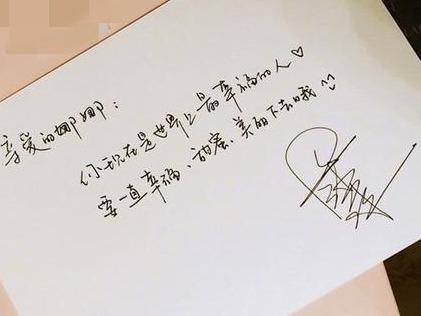 亲爱的娜娜：
你现在是世界上最幸福的人♡
要一直幸福、甜蜜、美丽下去哦